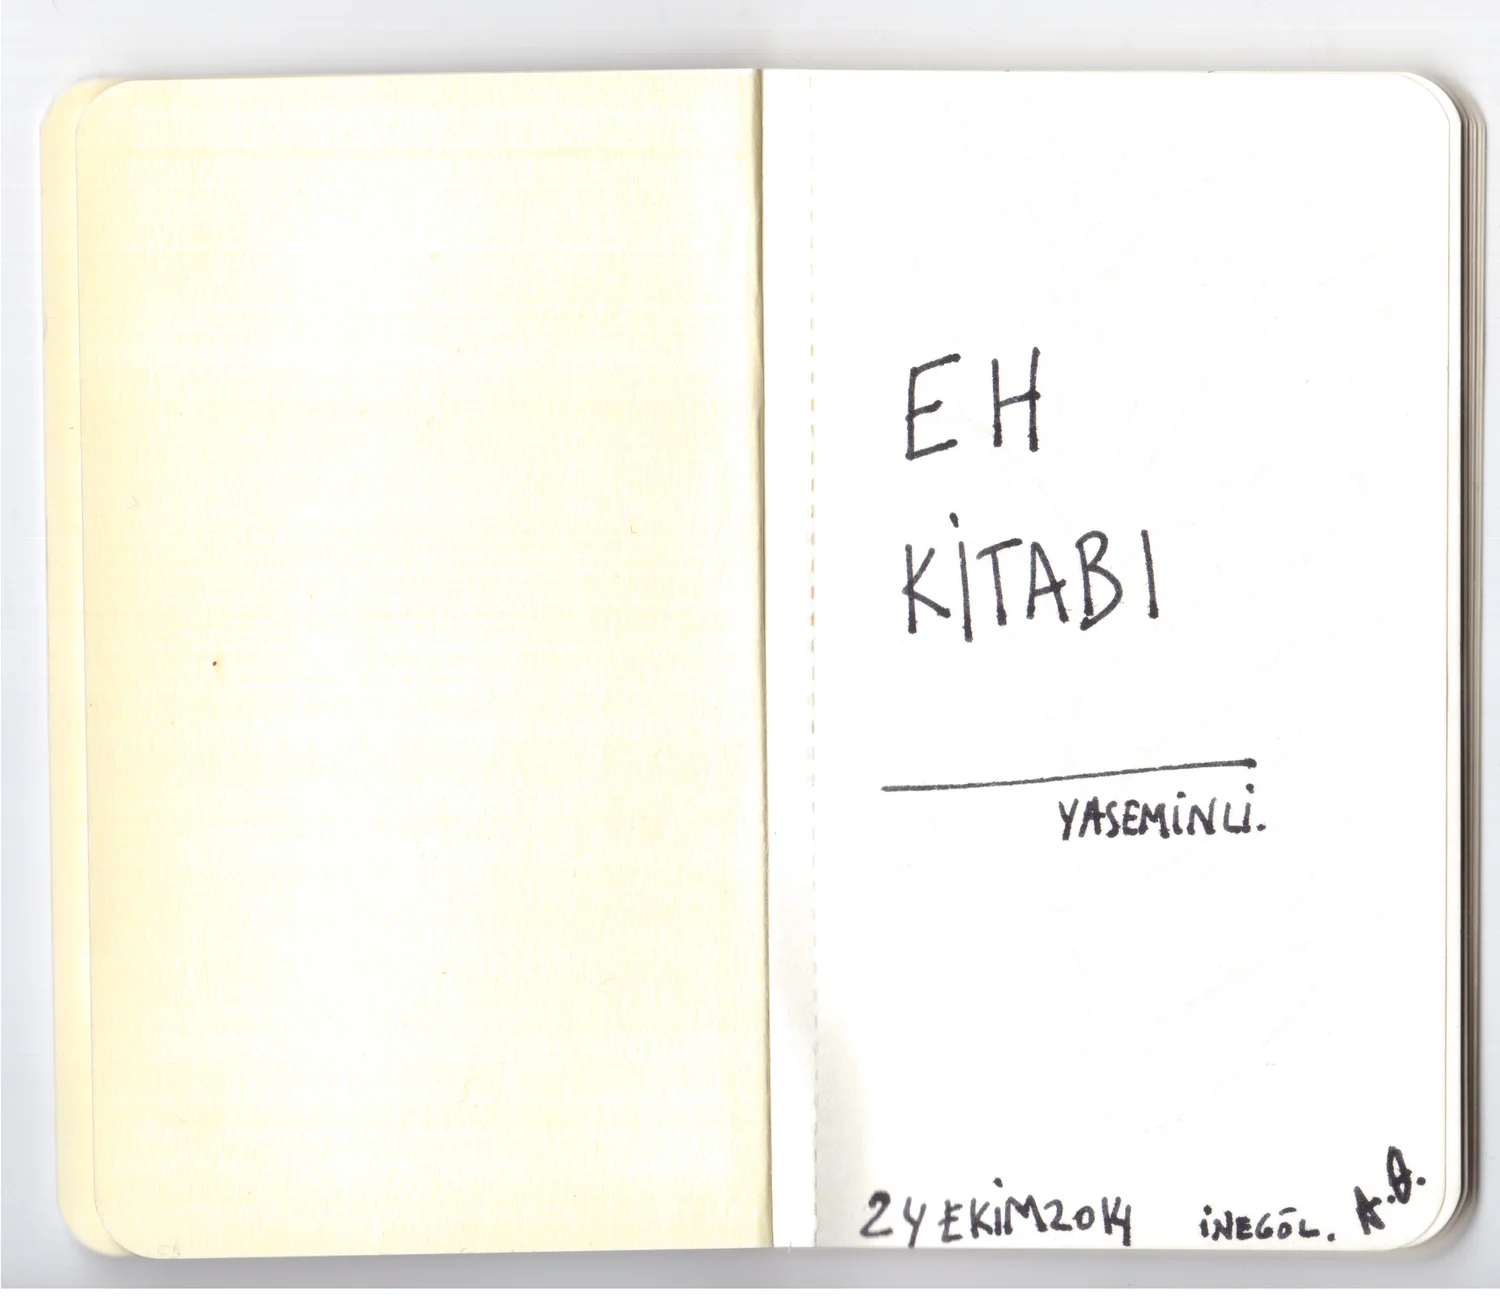 EH
KİTABI
YASEMİNLİ.
24 EKİM 2014 İNEGÖL. A.Ø.